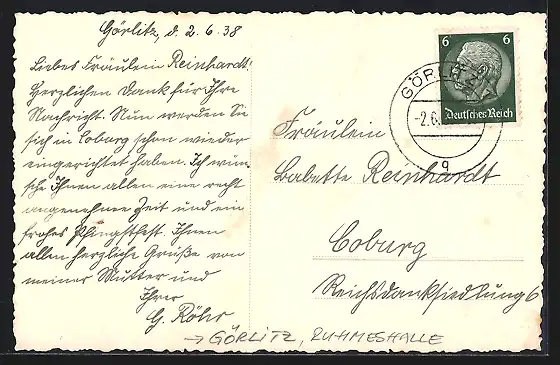 Görlitz, d. 2.6.38
Liebes Fräulein Reinhardt!
Herzlichen Dank für Ihre
Nachricht. Nun werden Sie
sich in Coburg schon wieder
eingerichtet haben. Ich wün-
sche Ihnen allen eine recht
angenehme Zeit und ein
frohes Pfingstfest. Ihnen
allen herzliche Grüße von
meiner Mutter und
Ihrer
G. Röhr
Fräulein
Babette Reinhardt
Coburg
Reichsdanksiedlung 6
→ GÖRLITZ, RUHMESHALLE
6 6
Deutsches Reich
GÖRL
-2.6.
q